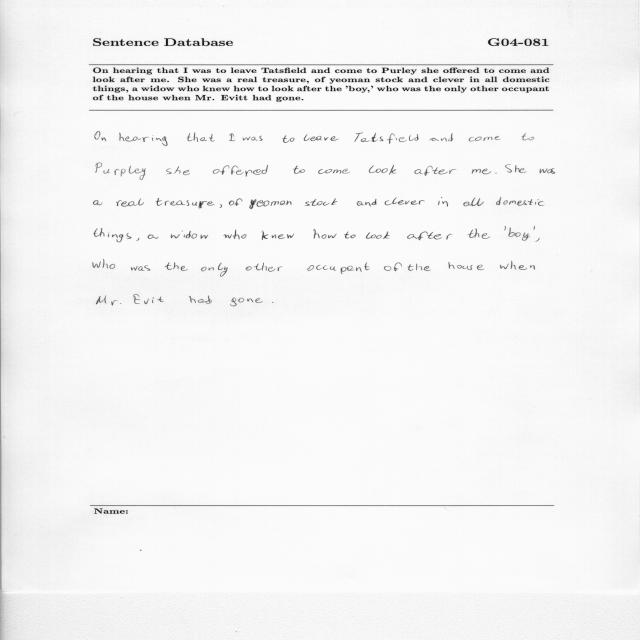 Sentence Database G04-081
On hearing that I was to leave Tatsfield and come to Purley she offered to come and
look after me. She was a real treasure, of yeoman stock and clever in all domestic
things, a widow who knew how to look after the 'boy,' who was the only other occupant
of the house when Mr. Evitt had gone.
On hearing that I was to leave Tatsfield and come to
Purpley she offered to come look after me. She was
a real treasure, of yeoman stock and clever in all domestic
things, a widow who knew how to look after the 'boy',
who was the only other occupent of the house when
Mr. Evit had gone.
Name: